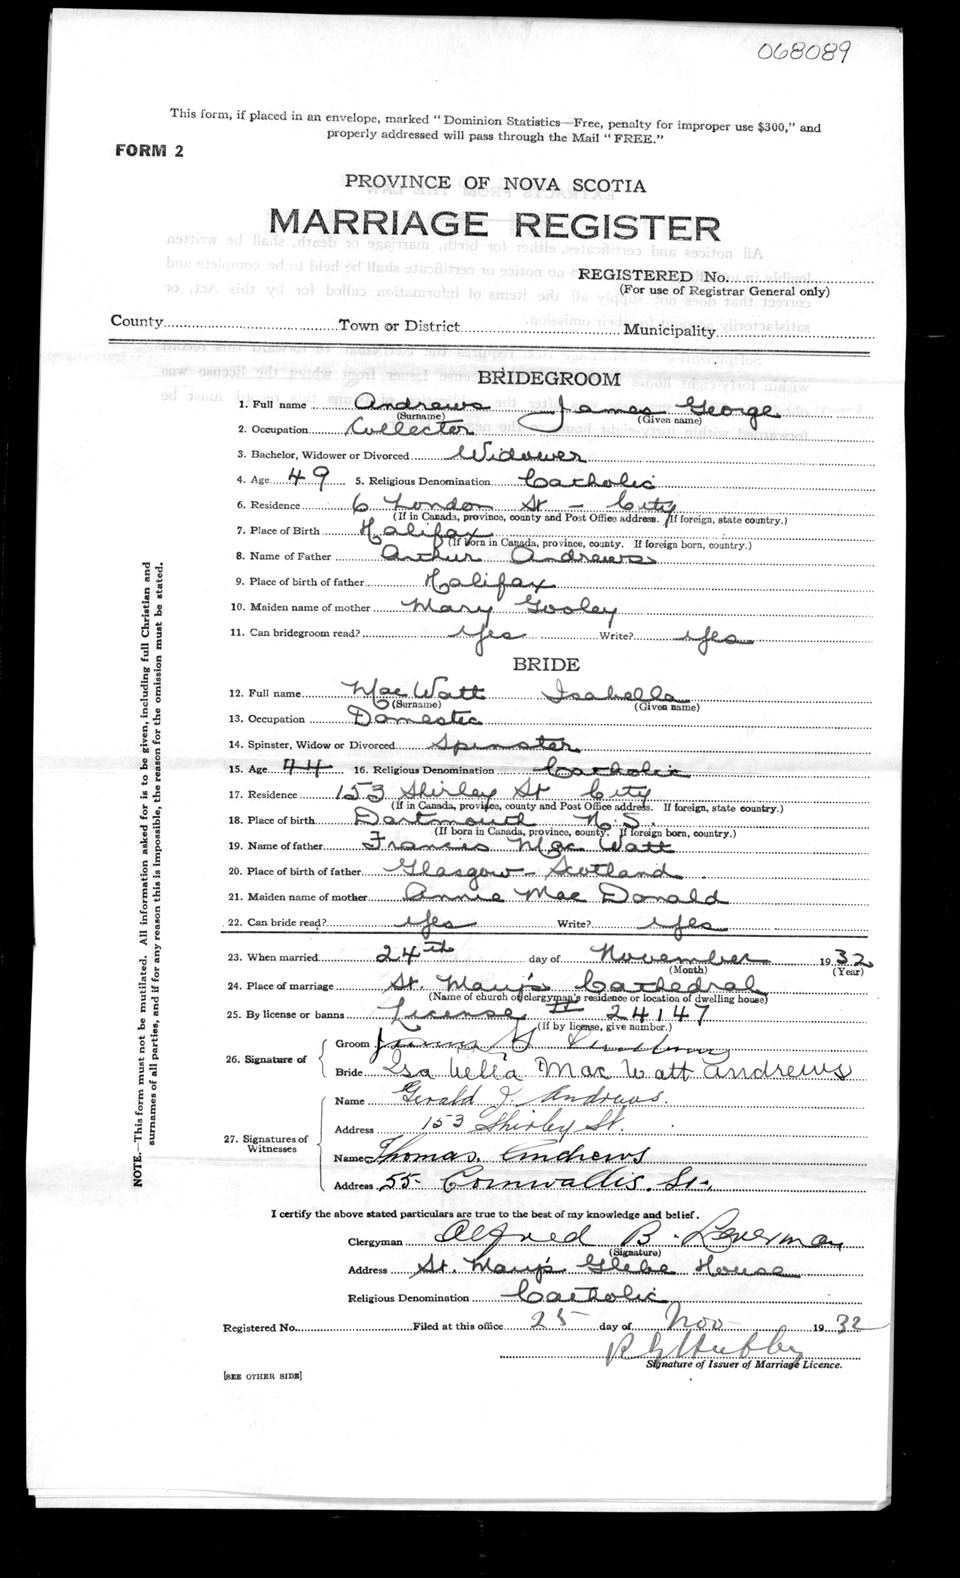 068089
This form, if placed in an envelope, marked "Dominion Statistics—Free, penalty for improper use $300," and
properly addressed will pass through the Mail "FREE."
FORM 2
PROVINCE OF NOVA SCOTIA
MARRIAGE REGISTER
REGISTERED No.
(For use of Registrar General only)
County Town or District Municipality
BRIDEGROOM
1. Full name Andrews James George
(Surname) (Given name)
2. Occupation Collector
3. Bachelor, Widower or Divorced Widower
4. Age 49 5. Religious Denomination Catholic
6. Residence 6 London St - City
(If in Canada, province, county and Post Office address. If foreign, state country.)
7. Place of Birth Halifax
(If born in Canada, province, county. If foreign born, country.)
8. Name of Father Arthur Andrews
9. Place of birth of father Halifax
10. Maiden name of mother Mary Gooley
11. Can bridegroom read? Yes Write? Yes
BRIDE
12. Full name MacWatt Isabella
(Surname) (Given name)
13. Occupation Domestic
14. Spinster, Widow or Divorced Spinster
15. Age 44 16. Religious Denomination Catholic
17. Residence 153 Shirley St City
(If in Canada, province, county and Post Office address. If foreign, state country.)
18. Place of birth Dartmouth N.S.
(If born in Canada, province, county. If foreign born, country.)
19. Name of father Francis MacWatt
20. Place of birth of father Glasgow - Scotland
21. Maiden name of mother Annie MacDonald
22. Can bride read? Yes Write? Yes
23. When married 24th day of November 1932
(Month) (Year)
24. Place of marriage St. Mary's Cathedral
(Name of church or clergyman's residence or location of dwelling house)
25. By license or banns License # 24147
(If by license, give number.)
26. Signature of
Groom James G
Bride Isabella MacWatt Andrews
27. Signatures of Witnesses
Name Gerald J. Andrews.
Address 153 Shirley St.
Name Thomas. Andrews
Address 55 Cornwallis. St.
I certify the above stated particulars are true to the best of my knowledge and belief.
Clergyman Alfred B. Leverman
(Signature)
Address St. Mary's Glebe House
Religious Denomination Catholic
Registered No. Filed at this office 25 day of Nov 1932
Signature of Issuer of Marriage Licence.
[SEE OTHER SIDE]
NOTE.—This form must not be mutilated. All information asked for is to be given, including full Christian and
surnames of all parties, and if for any reason this is impossible, the reason for the omission must be stated.